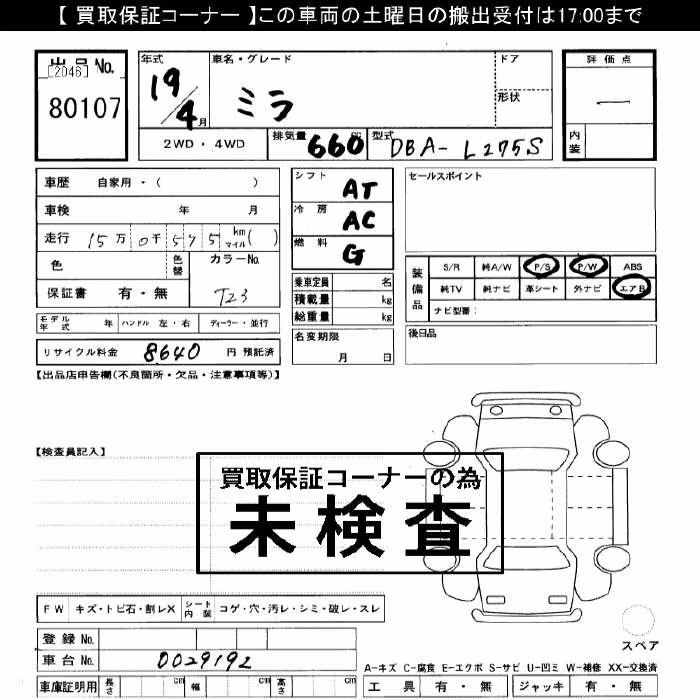 【 買取保証コーナー 】この車両の土曜日の搬出受付は17:00まで
出品No.
[2046]
80107
年式
19/4月
車名・グレード
ミラ
ドア
形状
評価点
―
内装
2WD・4WD
排気量 660 cc
型式 DBA-L275S
車歴 自家用・( )
車検 年 月
走行 15万0千575 km マイル( )
色 色替 カラーNo.
保証書 有・無 T23
モデル年式 年 ハンドル 左・右 ディーラー・並行
リサイクル料金 8640 円 預託済
シフト AT
冷房 AC
燃料 G
乗車定員 名
積載量 kg
総重量 kg
名変期限
月 日
セールスポイント
装備品
S/R 純A/W P/S P/W ABS
純TV 純ナビ 革シート 外ナビ エアB
ナビ型番:
後日品
【出品店申告欄(不良箇所・欠品・注意事項等)】
【検査員記入】
買取保証コーナーの為
未検査
FW キズ・トビ石・割レX シート内装 コゲ・穴・汚レ・シミ・破レ・スレ
登録No.
車台No. 0029192
車庫証明用 長さ cm 幅 cm 高さ cm
スペア
A-キズ C-腐食 E-エクボ S-サビ U-凹ミ W-補修 XX-交換済
工具 有・無 ジャッキ 有・無